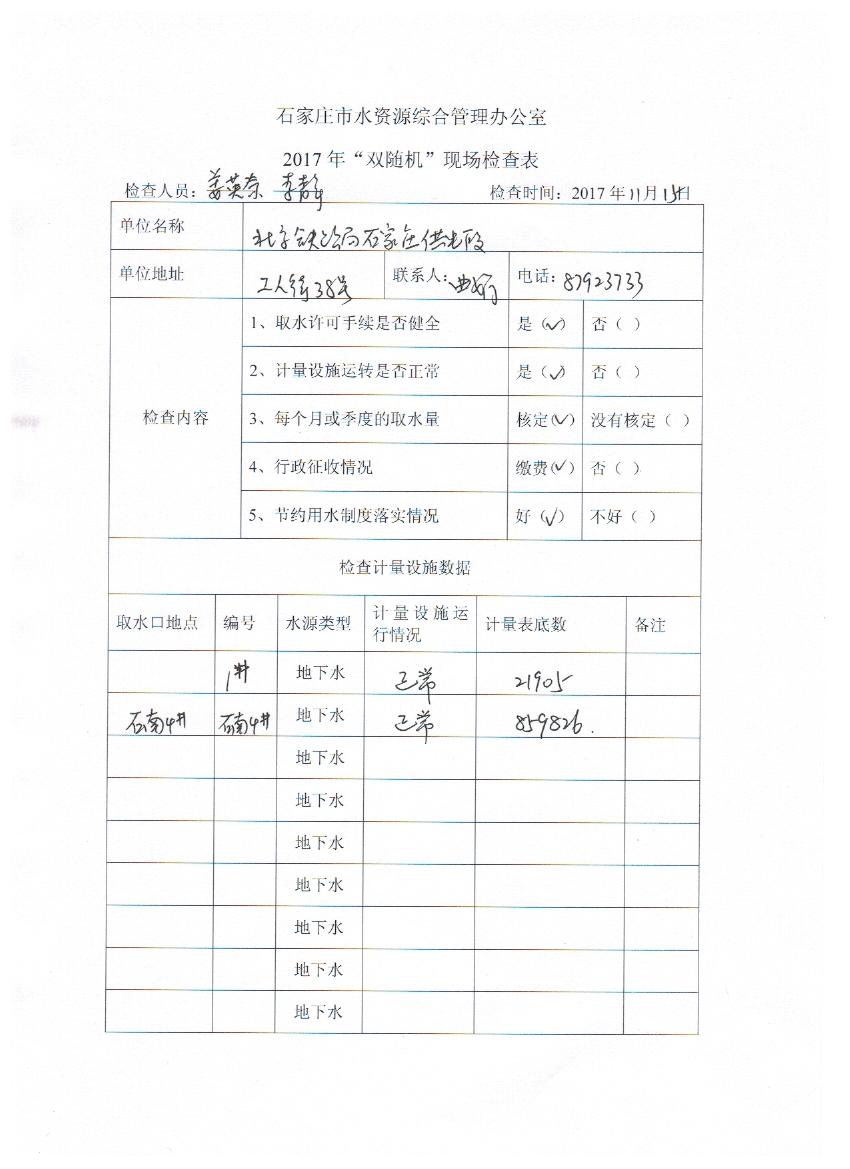 石家庄市水资源综合管理办公室
2017 年“双随机”现场检查表
检查人员：姜英奈 李静 检查时间：2017 年 11 月 15 日
单位名称 北京铁路局石家庄供电段
单位地址 工人街38号 联系人： 电话：87923733
检查内容
1、取水许可手续是否健全 是（✓） 否（ ）
2、计量设施运转是否正常 是（✓） 否（ ）
3、每个月或季度的取水量 核定（✓） 没有核定（ ）
4、行政征收情况 缴费（✓） 否（ ）
5、节约用水制度落实情况 好（✓） 不好（ ）
检查计量设施数据
取水口地点 编号 水源类型 计量设施运 计量表底数 备注
行情况
1# 地下水 正常 21905
石南4# 石南4# 地下水 正常 859826.
地下水
地下水
地下水
地下水
地下水
地下水
地下水